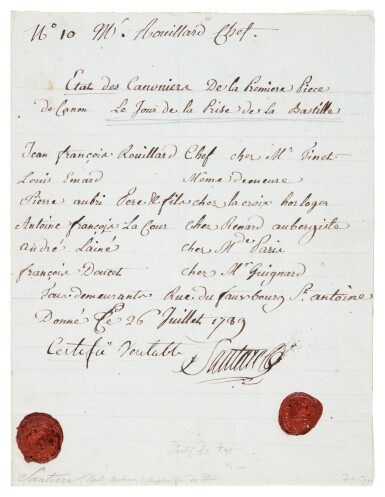 No 10 Mr. Rouillard Chef.
Etat des Canoniers De la Premiere Piece
de Canon Le Jour de la Prise de la Bastille
Jean françois Rouillard Chef chez Mr Pinet
Louis Emard Meme demeure
Pierre aubri Pere & fils chez la croix horloger
Antoine françois La Cour chez Renard aubergiste
andré Lainé chez Mde Paris
françois Doucet chez Mr Guignard
Tous demeurants Rue du fauxbourg St. antoine
Donné Ce 26 Juillet 1789
Certifié Veritable Santerre
Santerre